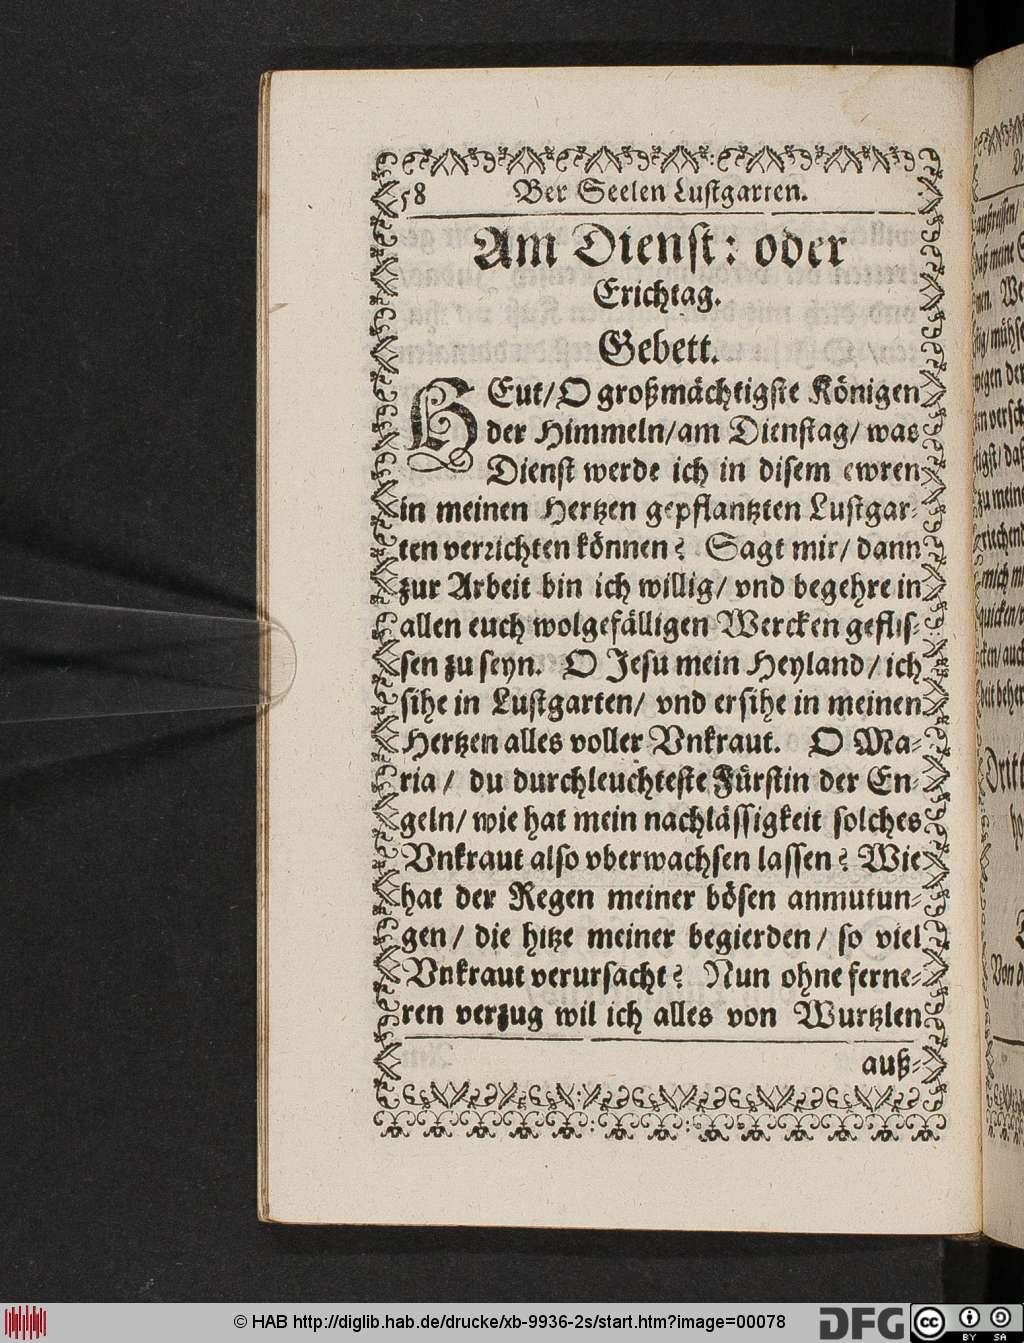 58 Der Seelen Lustgarten.
Am Dienst: oder
Erichtag.
Gebett.
HEut/ O großmächtigste Königen
der Himmeln/ am Dienstag/ was
Dienst werde ich in disem ewren
in meinen Hertzen gepflantzten Lustgar-
ten verrichten können? Sagt mir/ dann
zur Arbeit bin ich willig/ vnd begehre in
allen euch wolgefälligen Wercken geflis-
sen zu seyn. O Jesu mein Heyland/ ich
sihe in Lustgarten/ vnd ersihe in meinen
Hertzen alles voller Vnkraut. O Ma-
ria/ du durchleuchteste Fürstin der En-
geln/ wie hat mein nachlässigkeit solches
Vnkraut also vberwachsen lassen? Wie
hat der Regen meiner bösen anmutun-
gen/ die hitze meiner begierden/ so viel
Vnkraut verursacht? Nun ohne ferne-
ren verzug wil ich alles von Wurtzlen
auß-
© HAB http://diglib.hab.de/drucke/xb-9936-2s/start.htm?image=00078
DFG
cc BY SA